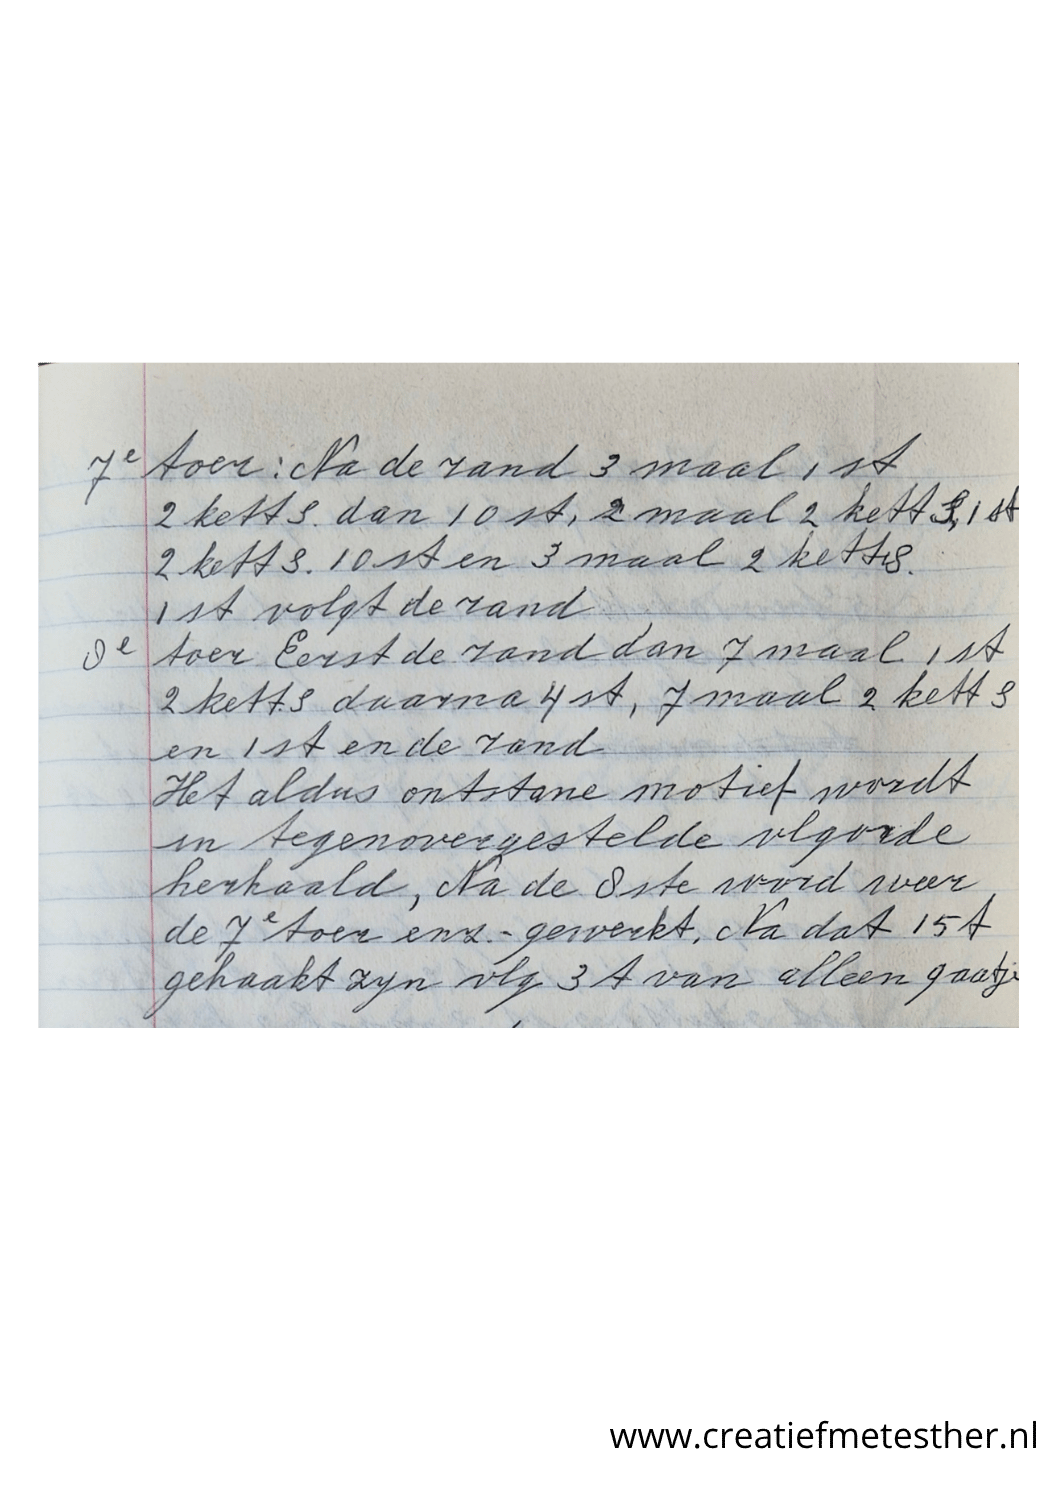 7e toer: Na de rand 3 maal 1 st
2 kett S. dan 10 st, 2 maal 2 kett S, 1 st
2 kett S. 10 st en 3 maal 2 kett S.
1 st volgt de rand
8e toer Eerst de rand dan 7 maal 1 st
2 kett S daarna 4 st, 7 maal 2 kett S
en 1 st en de rand
Het aldus ontstane motief wordt
in tegenovergestelde vlgorde
herhaald, Na de 8ste word weer
de 7e toer enz.- gewerkt. Na dat 15 t
gehaakt zyn vlg 3 t van alleen gaatje
www.creatiefmetesther.nl